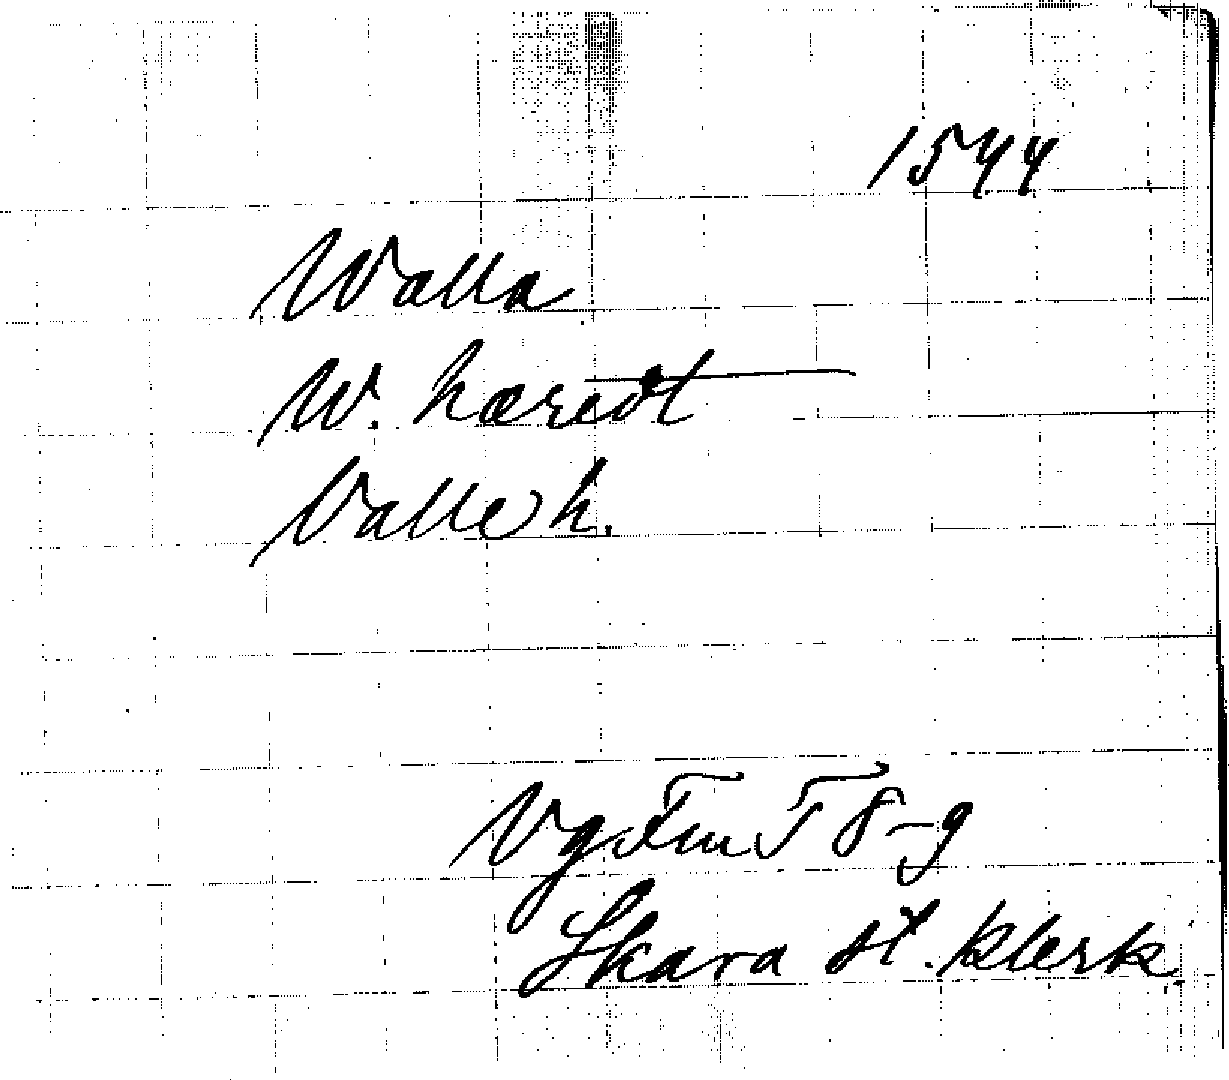 1544
Walla
W. hæredt
Valle h.
Vg Fm T 8-9
Skara st. klerk.